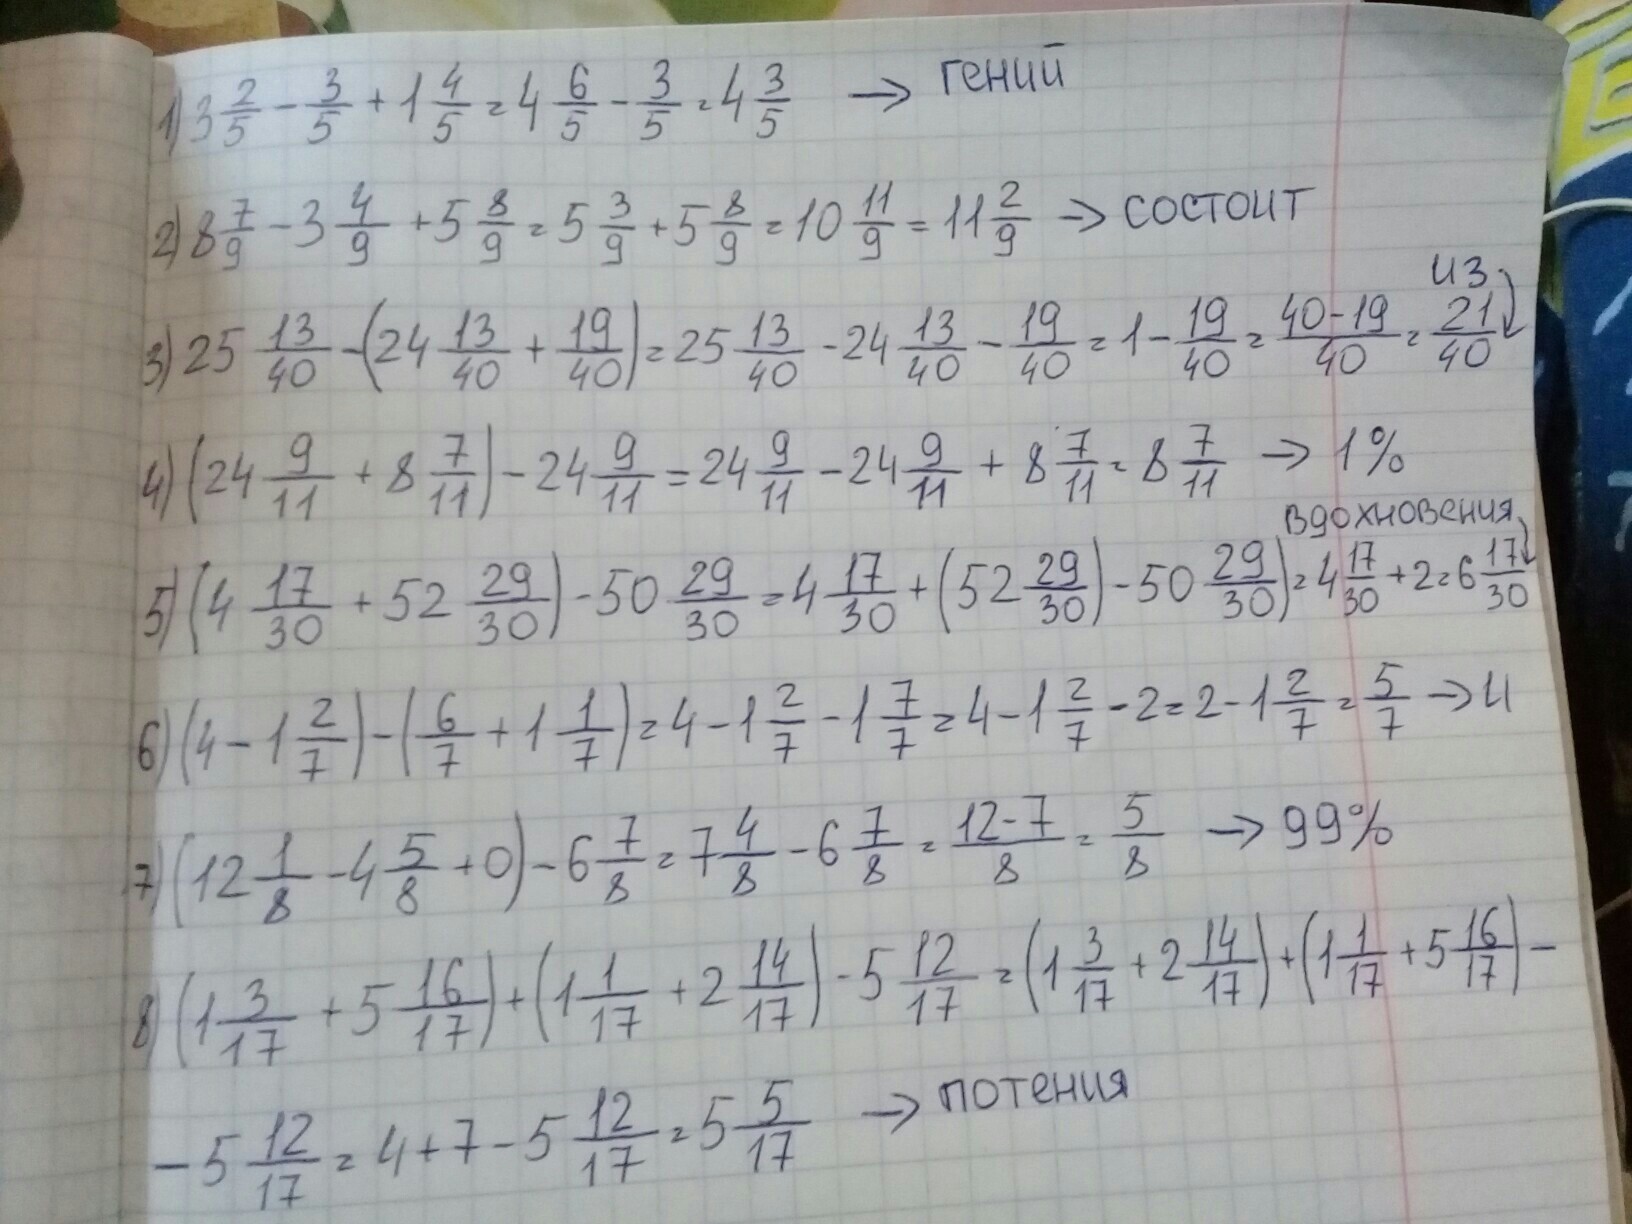 1) 3 2/5 - 3/5 + 1 4/5 = 4 6/5 - 3/5 = 4 3/5 → гений
2) 8 7/9 - 3 4/9 + 5 8/9 = 5 3/9 + 5 8/9 = 10 11/9 = 11 2/9 → состоит
из
3) 25 13/40 - (24 13/40 + 19/40) = 25 13/40 - 24 13/40 - 19/40 = 1 - 19/40 = 40-19/40 = 21/40
4) (24 9/11 + 8 7/11) - 24 9/11 = 24 9/11 - 24 9/11 + 8 7/11 = 8 7/11 → 1%
вдохновения
5) (4 17/30 + 52 29/30) - 50 29/30 = 4 17/30 + (52 29/30) - 50 29/30) = 4 17/30 + 2 = 6 17/30
6) (4 - 1 2/7) - (6/7 + 1 1/7) = 4 - 1 2/7 - 1 7/7 = 4 - 1 2/7 - 2 = 2 - 1 2/7 = 5/7 → и
7) (12 1/8 - 4 5/8 + 0) - 6 7/8 = 7 4/8 - 6 7/8 = 12-7/8 = 5/8 → 99%
8) (1 3/17 + 5 16/17) + (1 1/17 + 2 14/17) - 5 12/17 = (1 3/17 + 2 14/17) + (1 1/17 + 5 16/17) -
- 5 12/17 = 4 + 7 - 5 12/17 = 5 5/17 → потения